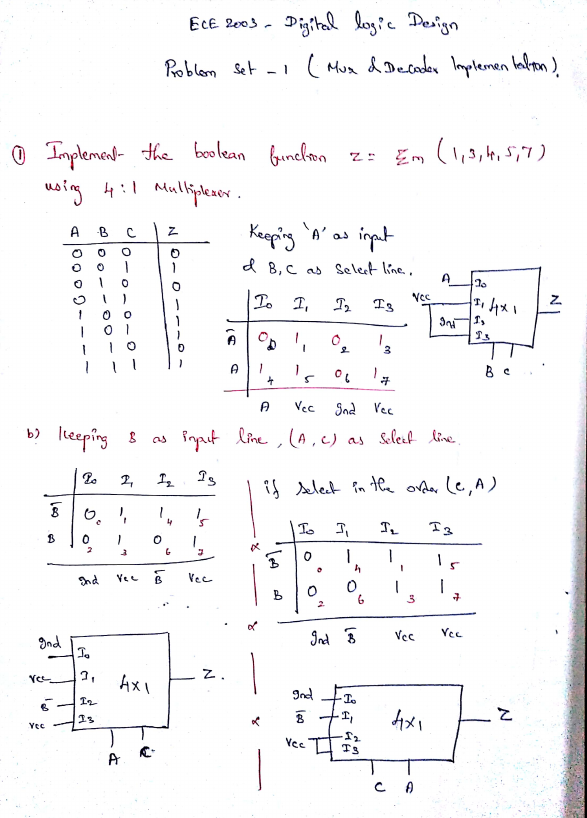 ECE 2003 - Digital logic Design
Problem Set - 1 ( Mux & Decoder Implementation ).
① Implement the boolean function Z = Σm (1,3,4,5,7)
using 4:1 Multiplexer.
A B C Z
0 0 0 0
0 0 1 1
0 1 0 0
0 1 1 1
1 0 0 1
1 0 1 1
1 1 0 0
1 1 1 1
Keeping 'A' as input
& B, C as Select line.
I0 I1 I2 I3
Ā 0 0 1 1 0 2 1 3
A 1 4 1 5 0 6 1 7
A Vcc gnd Vcc
A I0
Vcc I1 4x1 Z
gnd I2
I3
B C
b) Keeping B as input line, (A, C) as Select line.
I0 I1 I2 I3
B̄ 0 0 1 1 1 4 1 5
B 0 2 1 3 0 6 1 7
gnd Vcc B̄ Vcc
gnd I0
Vcc I1 4x1 Z.
B̄ I2
Vcc I3
A C
if select in the order (C, A)
I0 I1 I2 I3
B̄ 0 0 1 4 1 1 1 5
B 0 2 0 6 1 3 1 7
gnd B̄ Vcc Vcc
gnd I0
B̄ I1 4x1 Z
Vcc I2
I3
C A